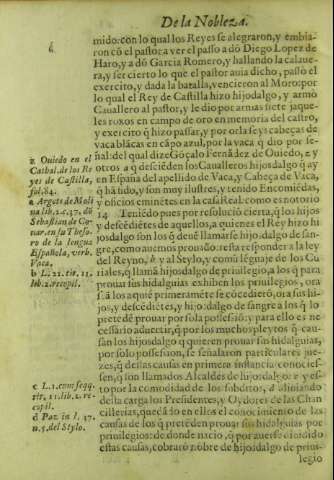 De la Nobleza.
mido: con lo qual los Reyes se alegraron, y embia-
ron cō el pastor a ver el passo a dō Diego Lopez de
Haro, y a dō Garcia Romero, y hallando la calaue-
ra, y ser cierto lo que el pastor auia dicho, passò el
exercito, y dada la batalla, vencieron al Moro: por
lo qual el Rey de Castilla hizo hijodalgo, y armò
Cauallero al pastor, y le dio por armas siete jaque-
les roxos en campo de oro en memoria del castro,
y exercito q̄ hizo passar, y por orla seys cabeças de
vaca blācas en cāpo azul, por la vaca q̄ dio por se-
ñal: del qual dize Gōçalo Fernādez de Ouiedo, z y
otros a q̄ desciēden los Caualleros hijosdalgo q̄ ay
en España del apellido de Vaca, y Cabeça de Vaca,
q̄ ha sido, y son muy ilustres, y tenido Encomiēdas,
y oficios eminētes en la casa Real: como es notorio
14 Teniēdo pues por resolució cierta, q̄ los hijos
y descēdiētes de aquellos, a quienes el Rey hizo hi
josdalgo son los q̄ deuē llamarse hijosdalgo de san-
gre, como auemos prouado: resta responder a la ley
del Reyno, b y al Stylo, y comū lēguaje de los Cu
riales, q̄ llamā hijosdalgo de priuilegio, a los q̄ para
prouar sus hidalguias exhiben los priuilegios, ora
seā los a quiē primeramēte se cōcediero, ora sus hi-
jos, y descēdiētes, y hijosdalgo de sangre a los q̄ lo
pretēdē prouar por sola possessiō: y para ello es ne-
cessario aduertir, q̄ por los muchos pleytos q̄ cau-
san los hijosdalgo q̄ quieren prouar sus hidalguias,
por solo possession, se señalaron particulares jue-
zes, q̄ destas causas en primera instancia conocies-
sen, q̄ son llamados Alcaldes de hijosdalgo: c y es-
to por la comodidad de los subditos, d aliuiando
desta carga los Presidentes, y Oydores de las Chan
cillerias, quedādo en ellos el conocimiento de las
causas de los q̄ pretēden prouar sus hidalguias por
priuilegios: de donde nacio, q̄ por auerse diuidido
estas causas, cobrarō nōbre de hijosdalgo de priui-
legio
z Ouiedo en el
Cathal. de los Re
yes de Castilla,
fol. 84.
a Argote de Moli
na lib. 1. c. 37. dō
Sebastian de Co-
uar. en su Theso-
ro de la lengua
Española, verb.
Vaca.
b L. 21. tit. 11.
lib. 2. recopil.
c L. 1. cum seqq.
tit. 11. lib. 2. re-
copil.
d Paz in l. 37.
n. 5. del Stylo.